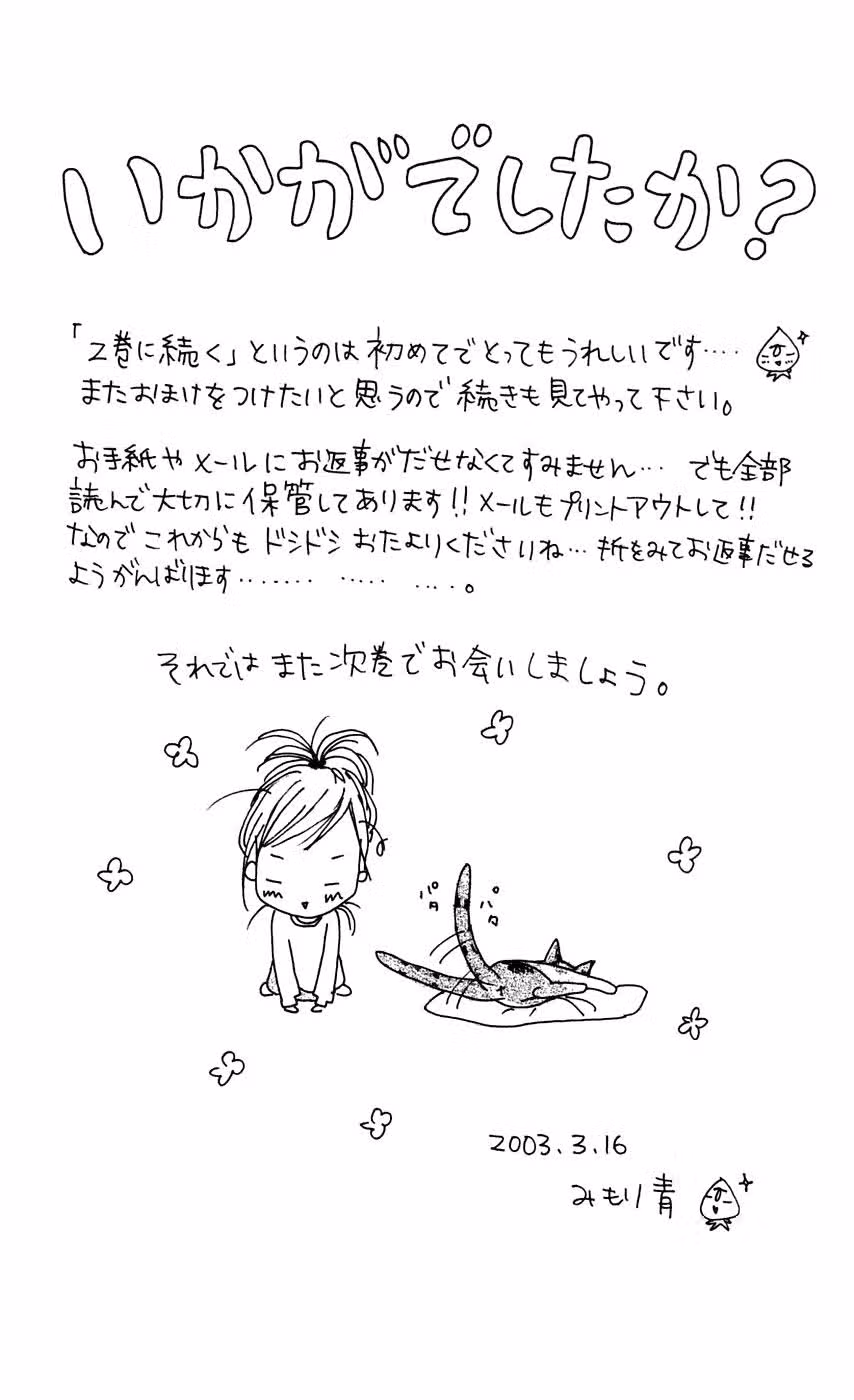 いかがでしたか?
「2巻に続く」というのは初めてでとってもうれしいです‥‥
またおまけをつけたいと思うので続きも見てやって下さい。
お手紙やメールにお返事がだせなくてすみません… でも全部
読んで大切に保管してあります!!メールもプリントアウトして!!
なのでこれからもドシドシおたよりくださいね…折をみてお返事だせる
ようがんばります‥‥‥‥ ‥‥‥ ‥‥。
それではまた次巻でお会いしましょう。
パタ
パタ
2003.3.16
みもり青